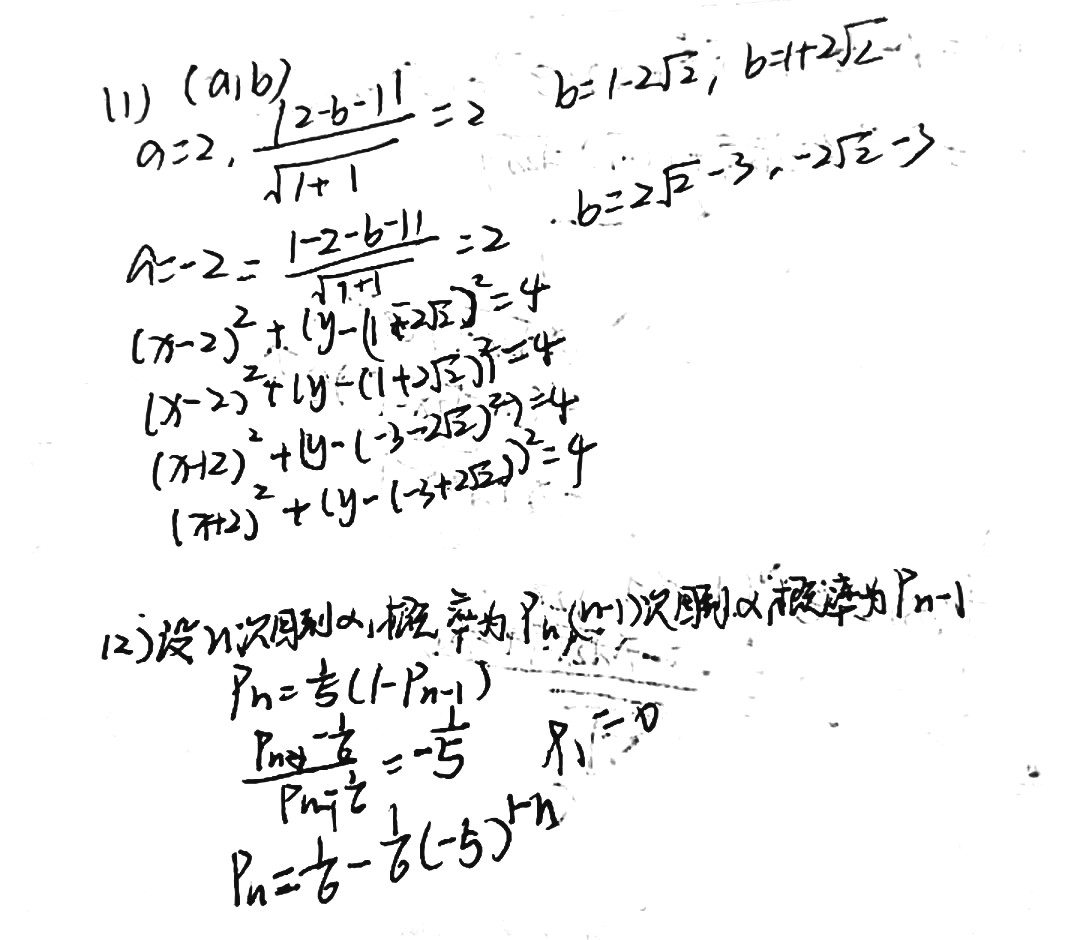 (1) (a,b)
a=2, |2-b-1|/√(1+1) = 2 b=1-2√2, b=1+2√2
a=-2 = |-2-b-1|/√(1+1) = 2 b=2√2-3, -2√2-3
(x-2)²+(y-(1-2√2))²=4
(x-2)²+(y-(1+2√2))²=4
(x+2)²+(y-(-3-2√2)²)=4
(x+2)²+(y-(-3+2√2))²=4
(2)设n次回到α,概率为Pn,(n-1)次回到α,概率为Pn-1
Pn=1/5(1-Pn-1)
(Pn-1/6)/(Pn-1-1/6)=-1/5 P1=0
Pn=1/6-1/6(-5)^(1-n)